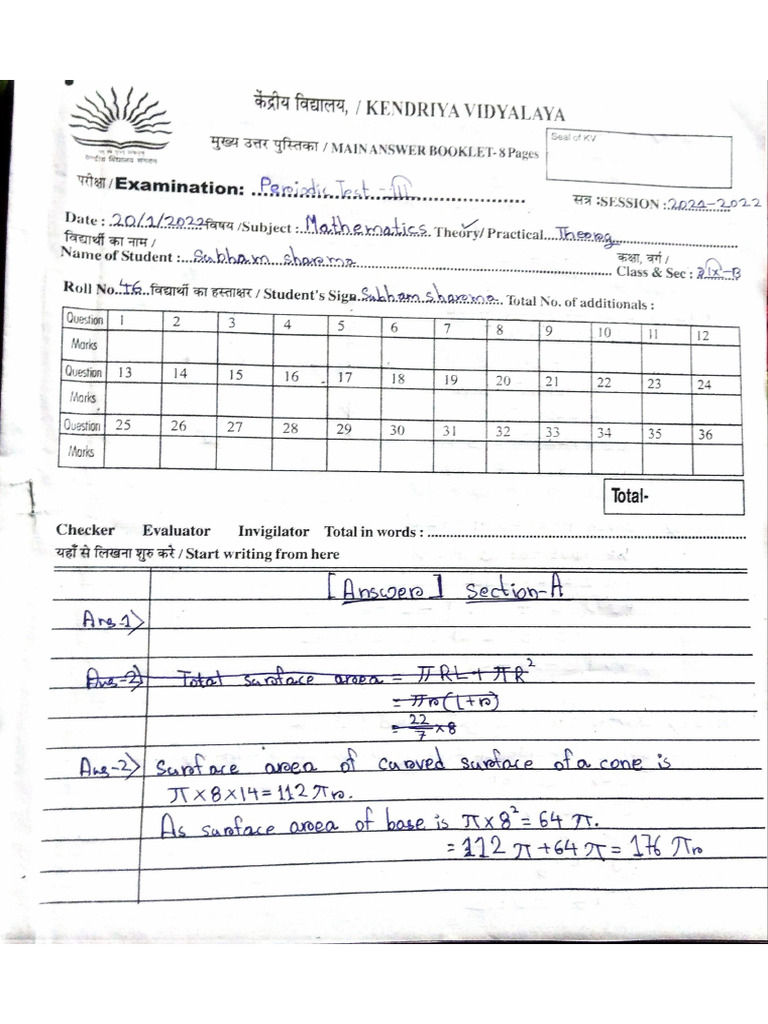 केंद्रीय विद्यालय, / KENDRIYA VIDYALAYA
मुख्य उत्तर पुस्तिका / MAIN ANSWER BOOKLET- 8 Pages
Seal of KV
केन्द्रीय विद्यालय संगठन
परीक्षा / Examination: Periodic Test - III
सत्र :SESSION : 2021-2022
Date : 20/1/2022 विषय /Subject : Mathematics Theory/ Practical Theory
विद्यार्थी का नाम /
Name of Student : Subham sharma
कक्षा, वर्ग /
Class & Sec : IX-B
Roll No. 46 विद्यार्थी का हस्ताक्षर / Student's Sign. Subham sharma Total No. of additionals :
Question 1 2 3 4 5 6 7 8 9 10 11 12
Marks
Question 13 14 15 16 17 18 19 20 21 22 23 24
Marks
Question 25 26 27 28 29 30 31 32 33 34 35 36
Marks
Total-
Checker Evaluator Invigilator Total in words :
यहाँ से लिखना शुरु करें / Start writing from here
[Answer] Section-A
Ans-1)
Ans-2) Total surface area = πRL + πR²
= πr(L+r)
= 22/7 × 8
Ans-2) Surface area of curved surface of a cone is
π×8×14=112πr.
As surface area of base is π×8²= 64 π.
=112 π+64 π= 176 πr